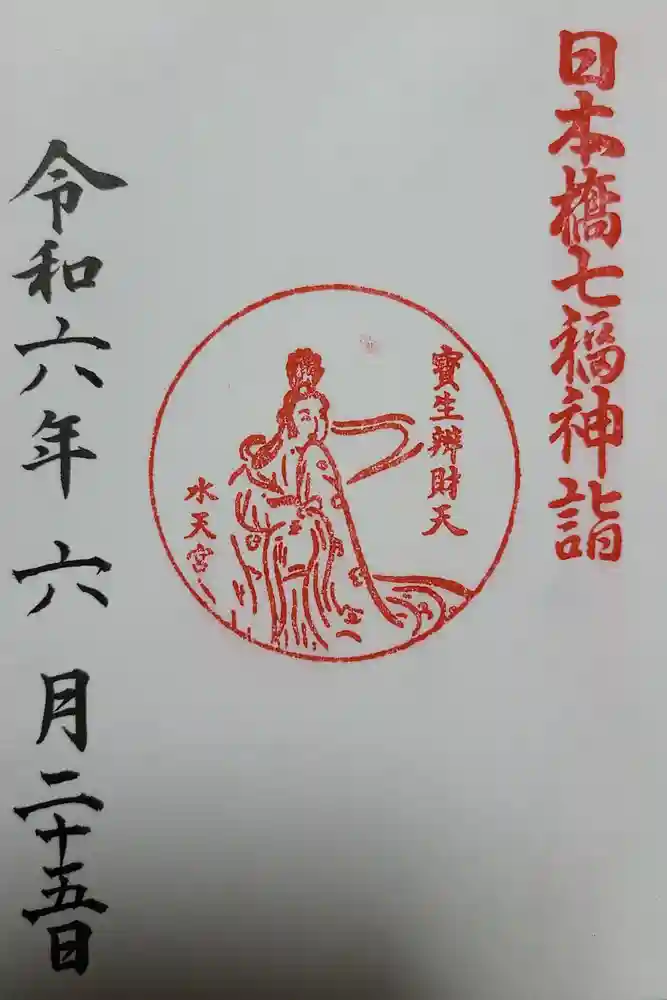 日本橋七福神詣
寳生辨財天
水天宮
令和六年六月二十五日